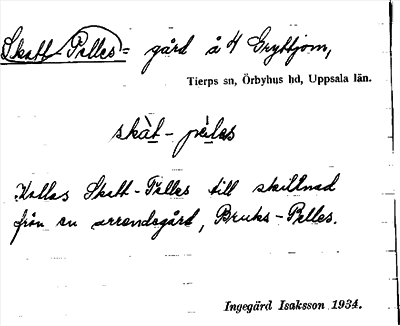 Skatt Pelles = gård å 4 Gryttjom,
Tierps sn, Örbyhus hd, Uppsala län.
skàt-
Kallas Skatt-Pelles till skillnad
från en arrendegård, Bruks-Pelles.
Ingegärd Isaksson 1934.